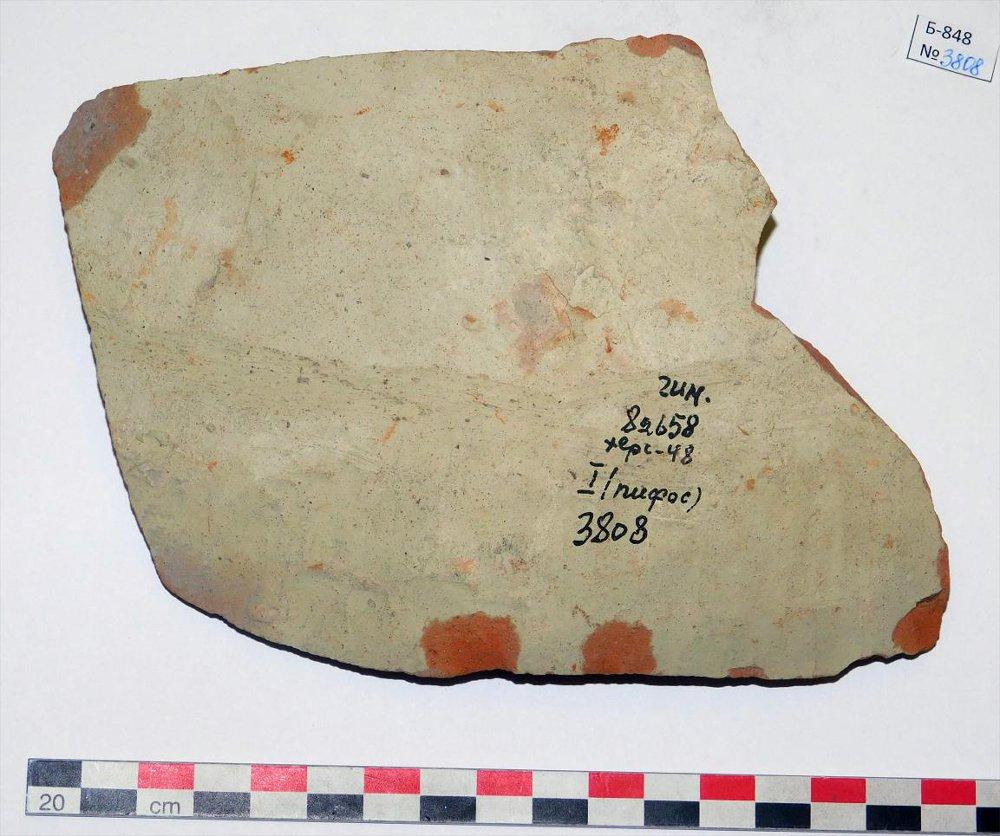 Б-848
№ 3808
гим.
82658
херс-48
I (пифос)
3808
20 cm